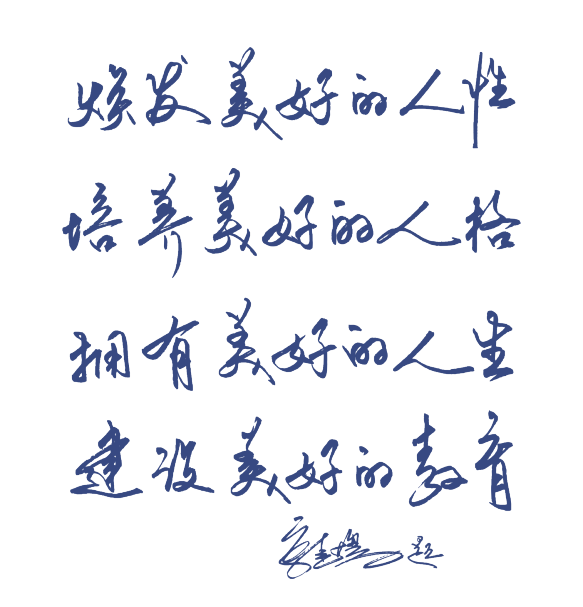 焕发美好的人性
培养美好的人格
拥有美好的人生
建设美好的教育
题